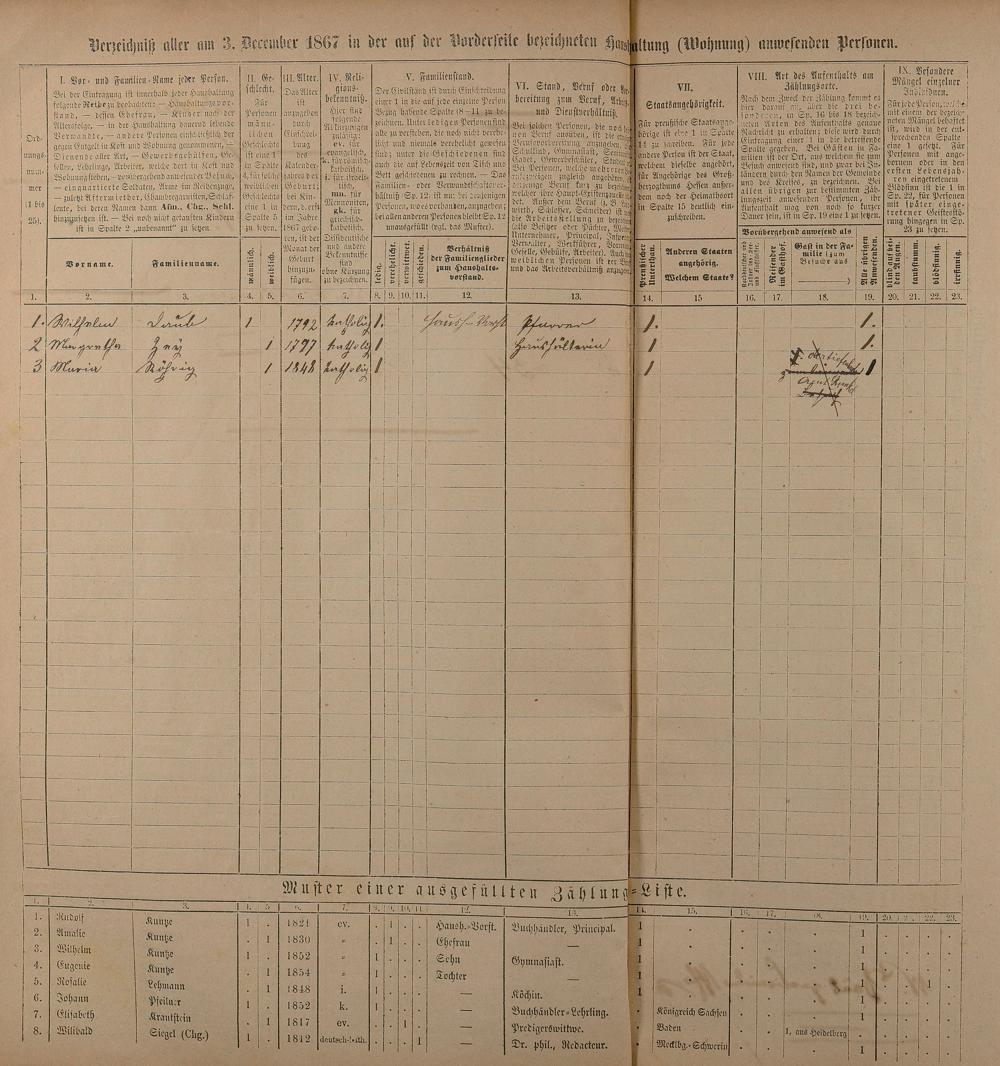 Verzeichniß aller am 3. December 1867 in der auf der Vorderseite bezeichneten Haushaltung (Wohnung) anwesenden Personen.
Ord-
nungs-
num-
mer
(1 bis
25).
I. Vor- und Familien-Name jeder Person.
Bei der Eintragung ist innerhalb jeder Haushaltung
folgende Reihe zu beobachten: — Haushaltungsvor-
stand, — dessen Ehefrau, — Kinder nach der
Altersfolge, — in der Haushaltung dauernd lebende
Verwandte, — andere Personen einschließlich der
gegen Entgelt in Kost und Wohnung genommenen, —
Dienende aller Art, — Gewerbsgehülfen, Ge-
sellen, Lehrlinge, Arbeiter, welche dort in Kost und
Wohnung stehen, — vorübergehend anwesender Besuch,
— einquartierte Soldaten, Arme im Reihenzuge,
— zuletzt Aftermiether, Chambregarnisten, Schlaf-
leute, bei deren Namen dann Afm., Chg., Schl.
hinzuzusetzen ist. — Bei noch nicht getauften Kindern
ist in Spalte 2 „unbenannt" zu setzen.
Vorname. Familienname.
II. Ge-
schlecht.
Für
Personen
männ-
lichen
Geschlechts
ist eine 1
in Spalte
4, für solche
weiblichen
Geschlechts
eine 1 in
Spalte 5
zu setzen.
männlich. weiblich.
III. Alter.
Das Alter
ist
anzugeben
durch
Einschrei-
bung
des
Kalender-
jahres der
Geburt;
bei Kin-
dern, d. erst
im Jahre
1867 gebo-
ren, ist der
Monat der
Geburt
hinzuzu-
fügen.
IV. Reli-
gions-
bekenntniß.
Hier sind
folgende
Abkürzungen
zulässig:
ev. für
evangelisch,
k. für römisch-
katholisch,
i. für israeli-
tisch,
mn. für
Mennoniten,
gk. für
griechisch-
katholisch.
Dissidentische
und andere
Bekenntnisse
sind
ohne Kürzung
zu bezeichnen.
V. Familienstand.
Der Civilstand ist durch Einschreibung
einer 1 in die auf jede einzelne Person
Bezug habende Spalte (8—11) zu be-
zeichnen. Unter ledigen Personen sind
alle zu verstehen, die noch nicht verehe-
licht und niemals verehelicht gewesen
sind; unter die Geschiedenen sind
auch die auf Lebenszeit von Tisch und
Bett geschiedenen zu rechnen. — Das
Familien- oder Verwandtschaftsver-
hältniß Sp. 12: ist nur bei denjenigen
Personen, wo es vorhanden, anzugeben;
bei allen anderen Personen bleibt Sp. 12
unausgefüllt (vgl. das Muster).
ledig. verehelicht. verwittwet. geschieden.
Verhältniß
der Familienglieder
zum Haushalts-
vorstand.
VI. Stand, Beruf oder
bereitung zum Beruf,
und Dienstverhältniß.
VII.
Staatsangehörigkeit.
Für preußische Staatsange-
hörige ist eine 1 in Spalte
14 zu schreiben. Für jede
andere Person ist der Staat,
welchem dieselbe angehört,
für Angehörige des Groß-
herzogthums Hessen außer-
dem noch der Heimathsort
in Spalte 15 deutlich ein-
zuschreiben.
Preußischer
Unterthan.
Anderen Staaten
angehörig.
Welchem Staate?
VIII. Art des Aufenthalts am
Zählungsorte.
Nach dem Zweck der Zählung kommt es
hier darauf an, aller die drei be-
sonderen, in Sp. 16 bis 18 bezeich-
neten Arten des Aufenthalts genaue
Nachricht zu erhalten; diese wird durch
Eintragung einer 1 in die betreffende
Spalte gegeben. Bei Gästen in Fa-
milien ist der Ort, aus welchem sie zum
Besuch anwesend sind, und zwar bei In-
ländern durch den Namen der Gemeinde
und des Kreises, zu bezeichnen. Bei
allen übrigen zu bestimmten Zäh-
lungszeit anwesenden Personen, ihr
Aufenthalt mag von noch so kurzer
Dauer sein, ist in Sp. 19 eine 1 zu setzen.
Vorübergehend anwesend als
Reisender
im Gasthof.
Gast in der Fa-
milie (zum
Besuche aus
)
Alle übrigen
Anwesenden.
IX. Besondere
Mängel einzelner
Individuen.
Für jede Person, welche
mit einem der bezeich-
neten Mängel behaftet
ist, wird in der ent-
sprechenden Spalte
eine 1 gesetzt. Für
Personen mit ange-
bornen oder in den
ersten Lebensjah-
ren eingetretenem
Blödsinn ist die 1 in
Sp. 22, für Personen
mit später einge-
tretener Geistesstö-
rung hingegen in Sp.
23 zu setzen.
blind auf bei-
den Augen. taubstumm. blödsinnig. irrsinnig.
1. 2. 3. 4. 5. 6. 7. 8. 9. 10. 11. 12. 13. 14. 15 16. 17. 18. 19. 20. 21. 22. 23.
1. Wilhelm Daub 1 1792 katholig 1. Haush-Vorst Pfarrer 1. 1.
2 Magretha Zey 1 1797 katholig 1 Haushälterin 1 1.
3 Maria Röhrig 1 1848 katholig 1 1 1
Muster einer ausgefüllten Zählungs-Liste.
1. 2. 3. 4. 5 6. 7. 8. 9. 10. 11. 12. 13. 14. 15. 16. 17. 18. 19. 20. 21. 22. 23.
1. Rudolf Kuntze 1 . 1821 ev. . 1 . . Haush.-Vorst. Buchhändler, Principal. 1 . . . . 1 . . . .
2. Amalie Kuntze . 1 1830 „ . 1 . . Ehefrau — 1 . . . . 1 . . . .
3. Wilhelm Kuntze 1 . 1852 „ 1 . . . Sohn Gymnasiast. 1 . . . . 1 . . . .
4. Eugenie Kuntze . 1 1854 „ 1 . . . Tochter — 1 . . . . 1 . . 1 .
5. Rosalie Lehmann . 1 1848 i. 1 . . . — Köchin. 1 . . . . 1 . . . .
6. Johann Pfeil:r 1 . 1852 k. 1 . . . — Buchhändler-Lehrling. . Königreich Sachsen . . . 1 . . . .
7. Elisabeth Krautstein . 1 1817 ev. . . 1 . — Predigerswittwe. . Baden . . 1, aus Heidelberg . . . . .
8. Wilibald Siegel (Chg.) 1 . 1812 deutsch-kath. . . . 1 — Dr. phil., Redacteur. . Mecklbg.-Schwerin . . . 1 . . . .